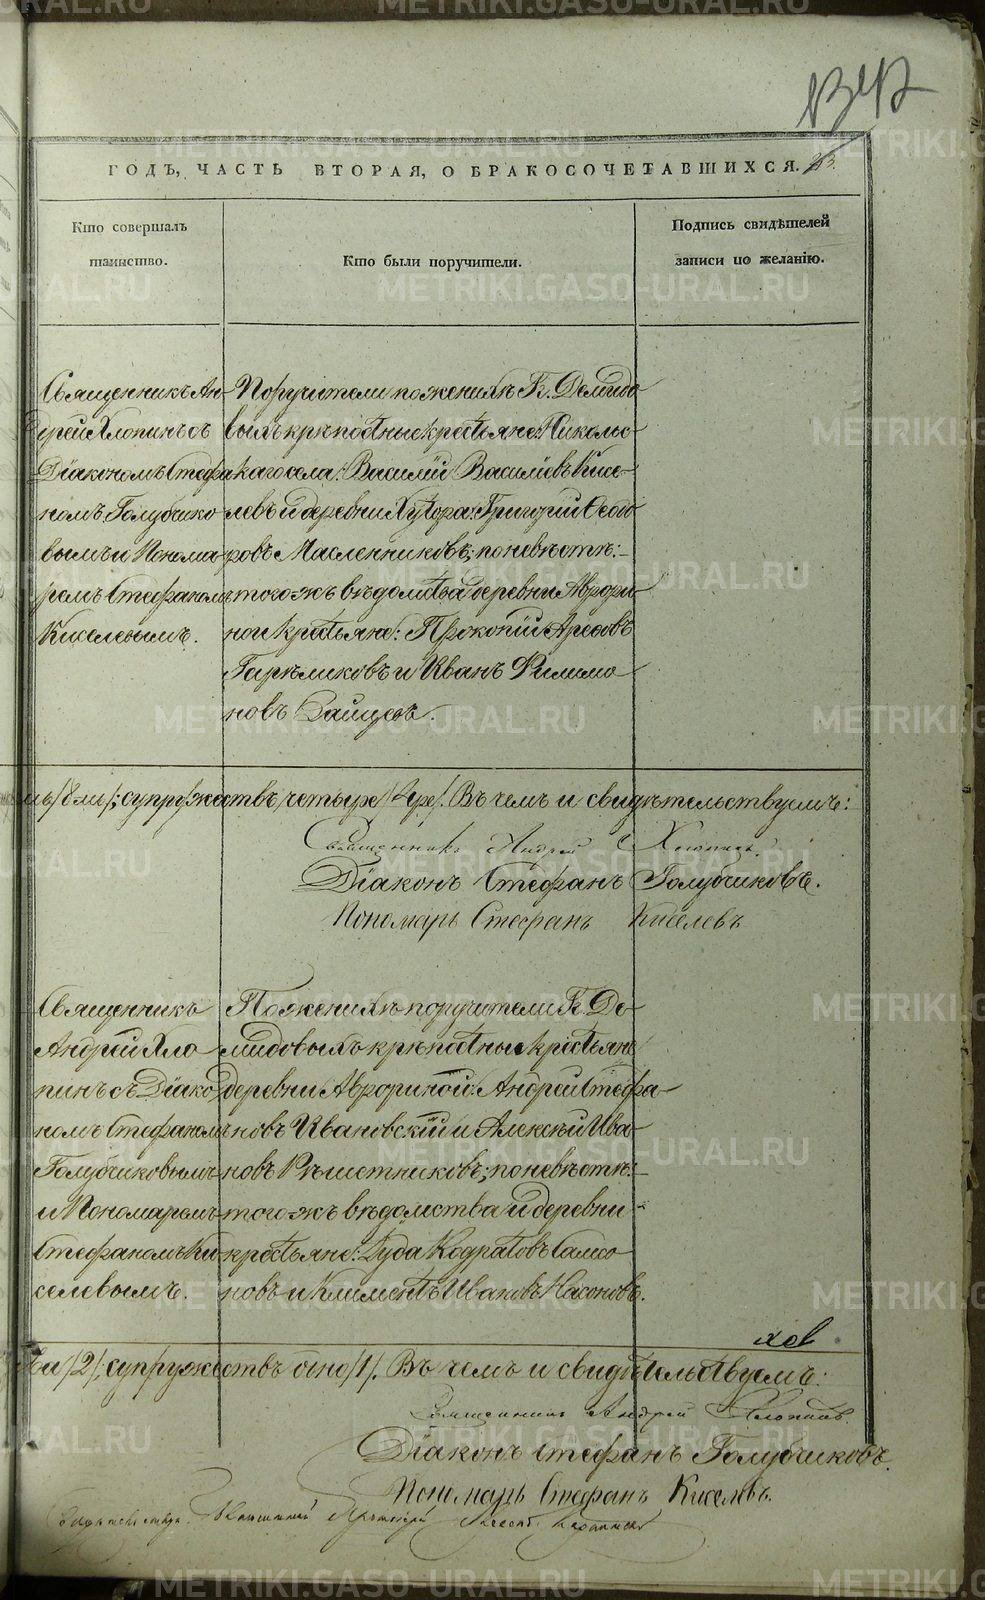 ГОДЪ, ЧАСТЬ ВТОРАЯ, О БРАКОСОЧЕТАВШИХСЯ.
Кто совершалъ таинство.
Кто были поручители.
Подпись свидѣтелей записи по желанію.
Священникъ Ан-
дрей Хлопинъ съ
Діакономъ Стефа
номъ Голубчико
вымъ и Понома-
ремъ Стефаномъ
Киселевымъ.
Поручители по женихѣ Г. Демидо
выхъ крѣпостные крестьяне: Никольс-
каго села: Василій Васильевъ Кисе-
левъ и деревни Хутора: Григорій Ѳеодо
ровъ Масленниковъ; по невѣстѣ:
того-жъ вѣдомства деревни Аврори-
ной крестьяне: Прокопій
и Иванъ Филимо
новъ Зайцевъ.
супружествъ четыре /4ре/. Въ чемъ и свидѣтельствуемъ:
Священникъ Андрей Хлопинъ.
Діаконъ Стефанъ Голубчиковъ.
Пономарь Стефанъ Киселевъ
Священникъ
Андрей Хло
пинъ съ Діако
номъ Стефаномъ
Голубчиковымъ
и Пономаремъ
Стефаномъ Ки
селевымъ.
По женихѣ поручители Г. Де-
мидовыхъ крѣпостные крестьяне
деревни Аврориной: Андрей Стефа-
новъ Ивановскій и Алексѣй Ива-
новъ Рѣшетниковъ; по невѣстѣ:
того-жъ вѣдомства и деревни
крестьяне: Іуда Кодратовъ Самсо
новъ и Климентъ Ивановъ Насоновъ.
/2/; супружествъ одно /1/. Въ чемъ и свидѣтельствуемъ:
Священникъ Андрей Хлопинъ.
Діаконъ Стефанъ Голубчиковъ.
Пономарь Стефанъ Киселевъ.
METRIKI.GASO-URAL.RU